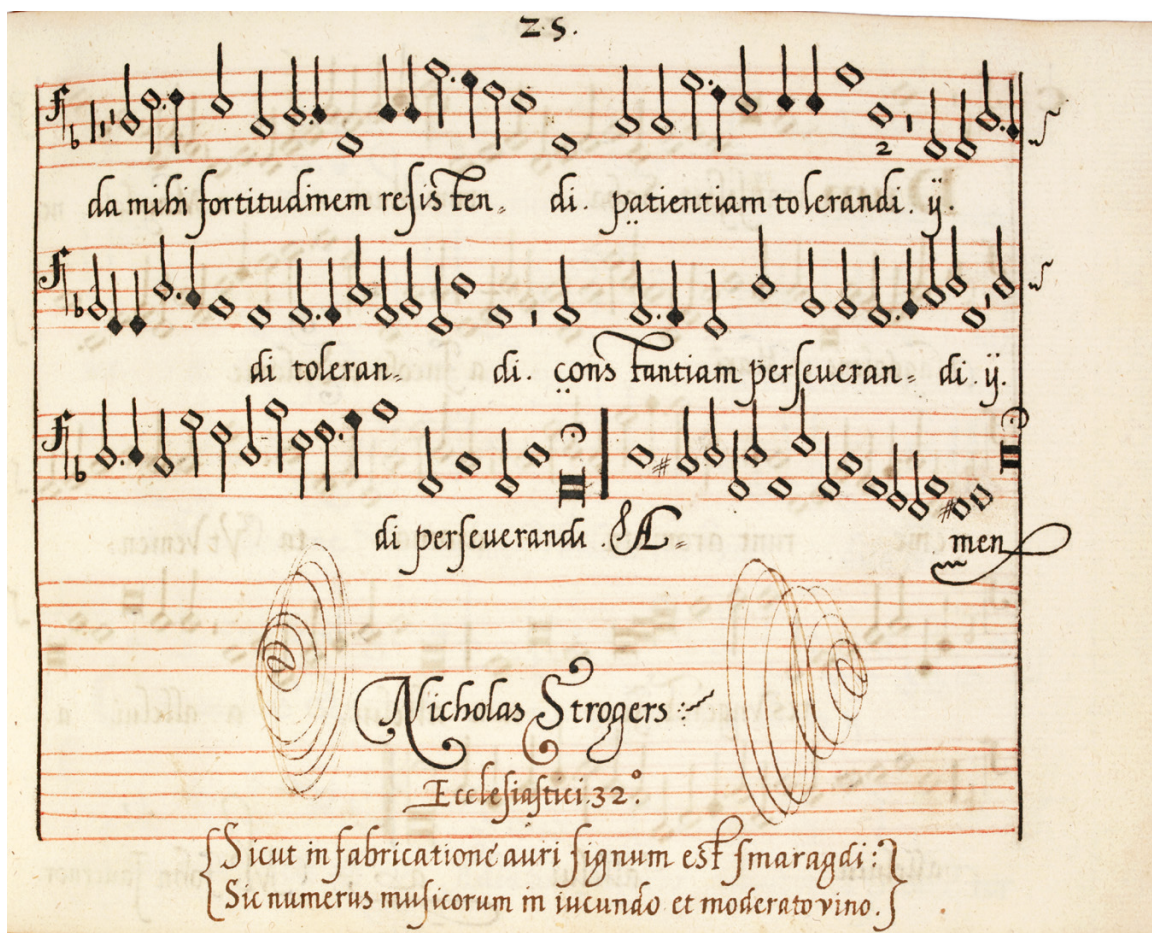 25.
da mihi fortitudinem resisten= di. patientiam tolerandi. ij.
di toleran= di. constantiam perseueran= di. ij.
di perseuerandi. A= men
Nicholas Strogers:
Ecclesiastici. 32.º
Sicut in fabricatione auri signum est smaragdi:
Sic numerus musicorum in iucundo et moderato vino.